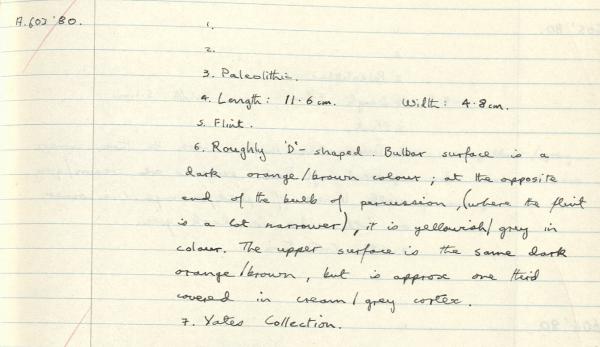 A.603'80.
1.
2.
3. Paleolithic.
4. Length: 11.6cm. Width: 4.8cm.
5. Flint.
6. Roughly 'D'-shaped. Bulbar surface is a
dark orange/brown colour; at the opposite
end of the bulb of percussion, (where the flint
is a lot narrower), it is yellowish/grey in
colour. The upper surface is the same dark
orange/brown, but is approx one third
covered in cream/grey cortex.
7. Yates Collection.